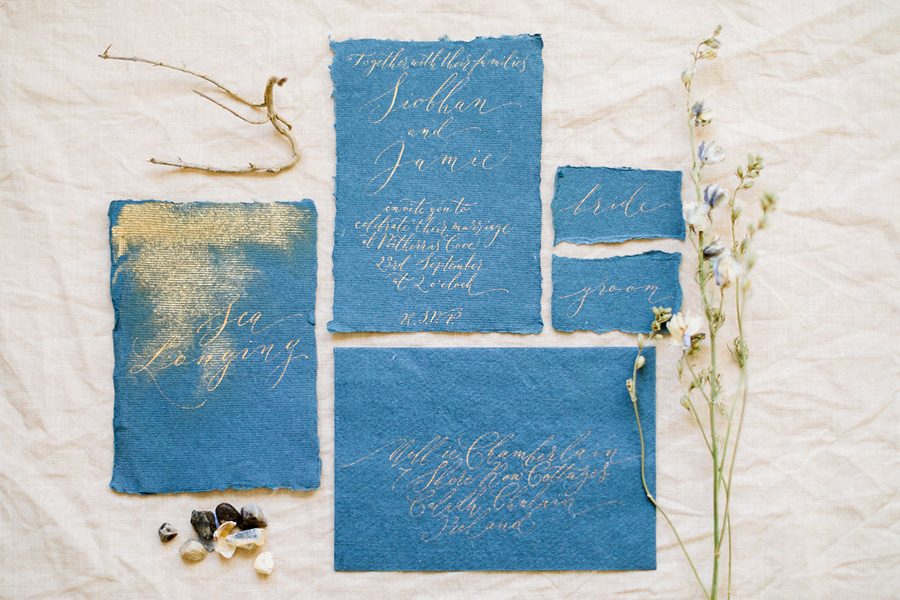 Together with their families
Siobhan
and
Jamie
invite you to
celebrate their marriage
at Cove
23rd September
at 2 o'clock
R.S.V.P
bride
groom
Sea
Longing
Chamberlain
7 Shore Row Cottages
Ireland